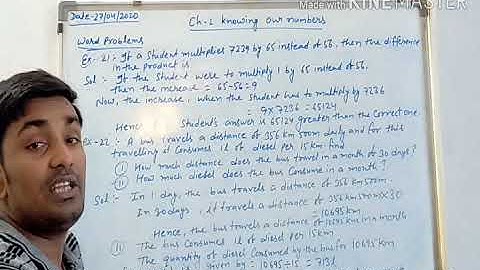 Made with KINEMASTER
Date-27/04/2020
Ch-1 Knowing our numbers
Word Problems
Ex-21:- If a Student multiplies 7239 by 65 instead of 56, then the difference
in the product is
Sol:- If the Student were to multiply 1 by 65 instead of 56,
then the increase = 65-56=9
Now, the increase, when the student had to multiply by 7236
9x7236 = 65124
Hence Student's answer is 65124 greater than the correct one
Ex-22:- A bus travels a distance of 356 km 500m daily and for this
travelling it consumes 1l of diesel per 15km find
(i) How much distance does the bus travel in a month of 30 days?
(ii) How much diesel does the bus consume in a month?
Sol:- In 1 day, the bus travels a distance of 356 km 500m.
In 30 days, it travels a distance of 356 km 500m x 30
= 10695 km
Hence, the bus travels a distance of 10695 km in a month
(ii) The bus consumes 1l of diesel per 15km
The quantity of diesel consumed by the bus for 10695 km
is given by = 10695÷15 = 713l